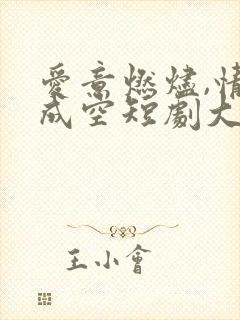 愛意燃燼,情
成空短劇大
王小會